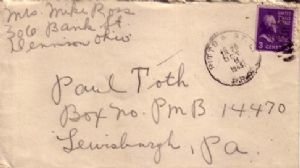 Mrs. Mike Ross
306 Bank St.
Dennison Ohio
3 CENTS
Paul Toth
Box No. PMB 14470
Lewisburgh, Pa.